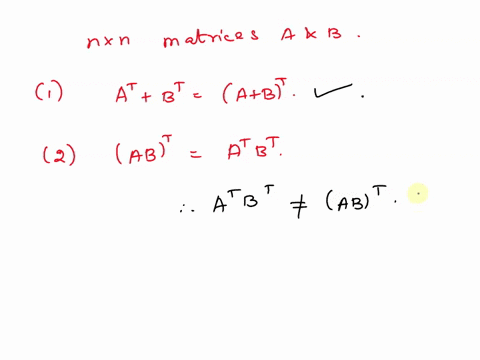 n×n matrices A & B.
(1) Aᵀ + Bᵀ = (A+B)ᵀ. ✓.
(2) (AB)ᵀ = AᵀBᵀ.
∴ AᵀBᵀ ≠ (AB)ᵀ.